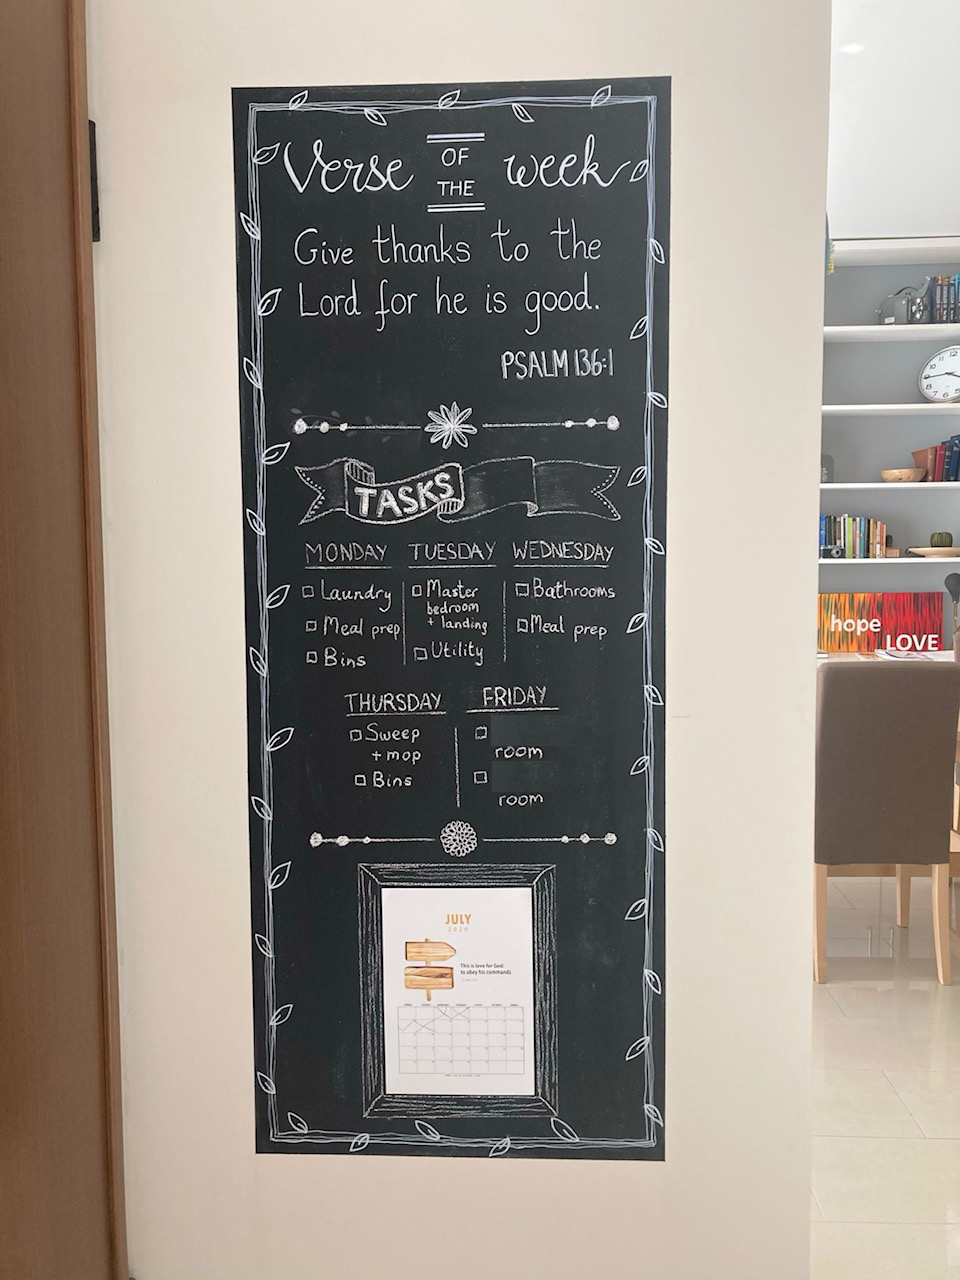 Verse OF THE week
Give thanks to the
Lord for he is good.
PSALM 136:1
TASKS
MONDAY
Laundry
Meal prep
Bins
TUESDAY
Master
bedroom
+ landing
Utility
WEDNESDAY
Bathrooms
Meal prep
THURSDAY
Sweep
+ mop
Bins
FRIDAY
room
room
JULY
2020
This is love for God:
to obey his commands
hope
LOVE